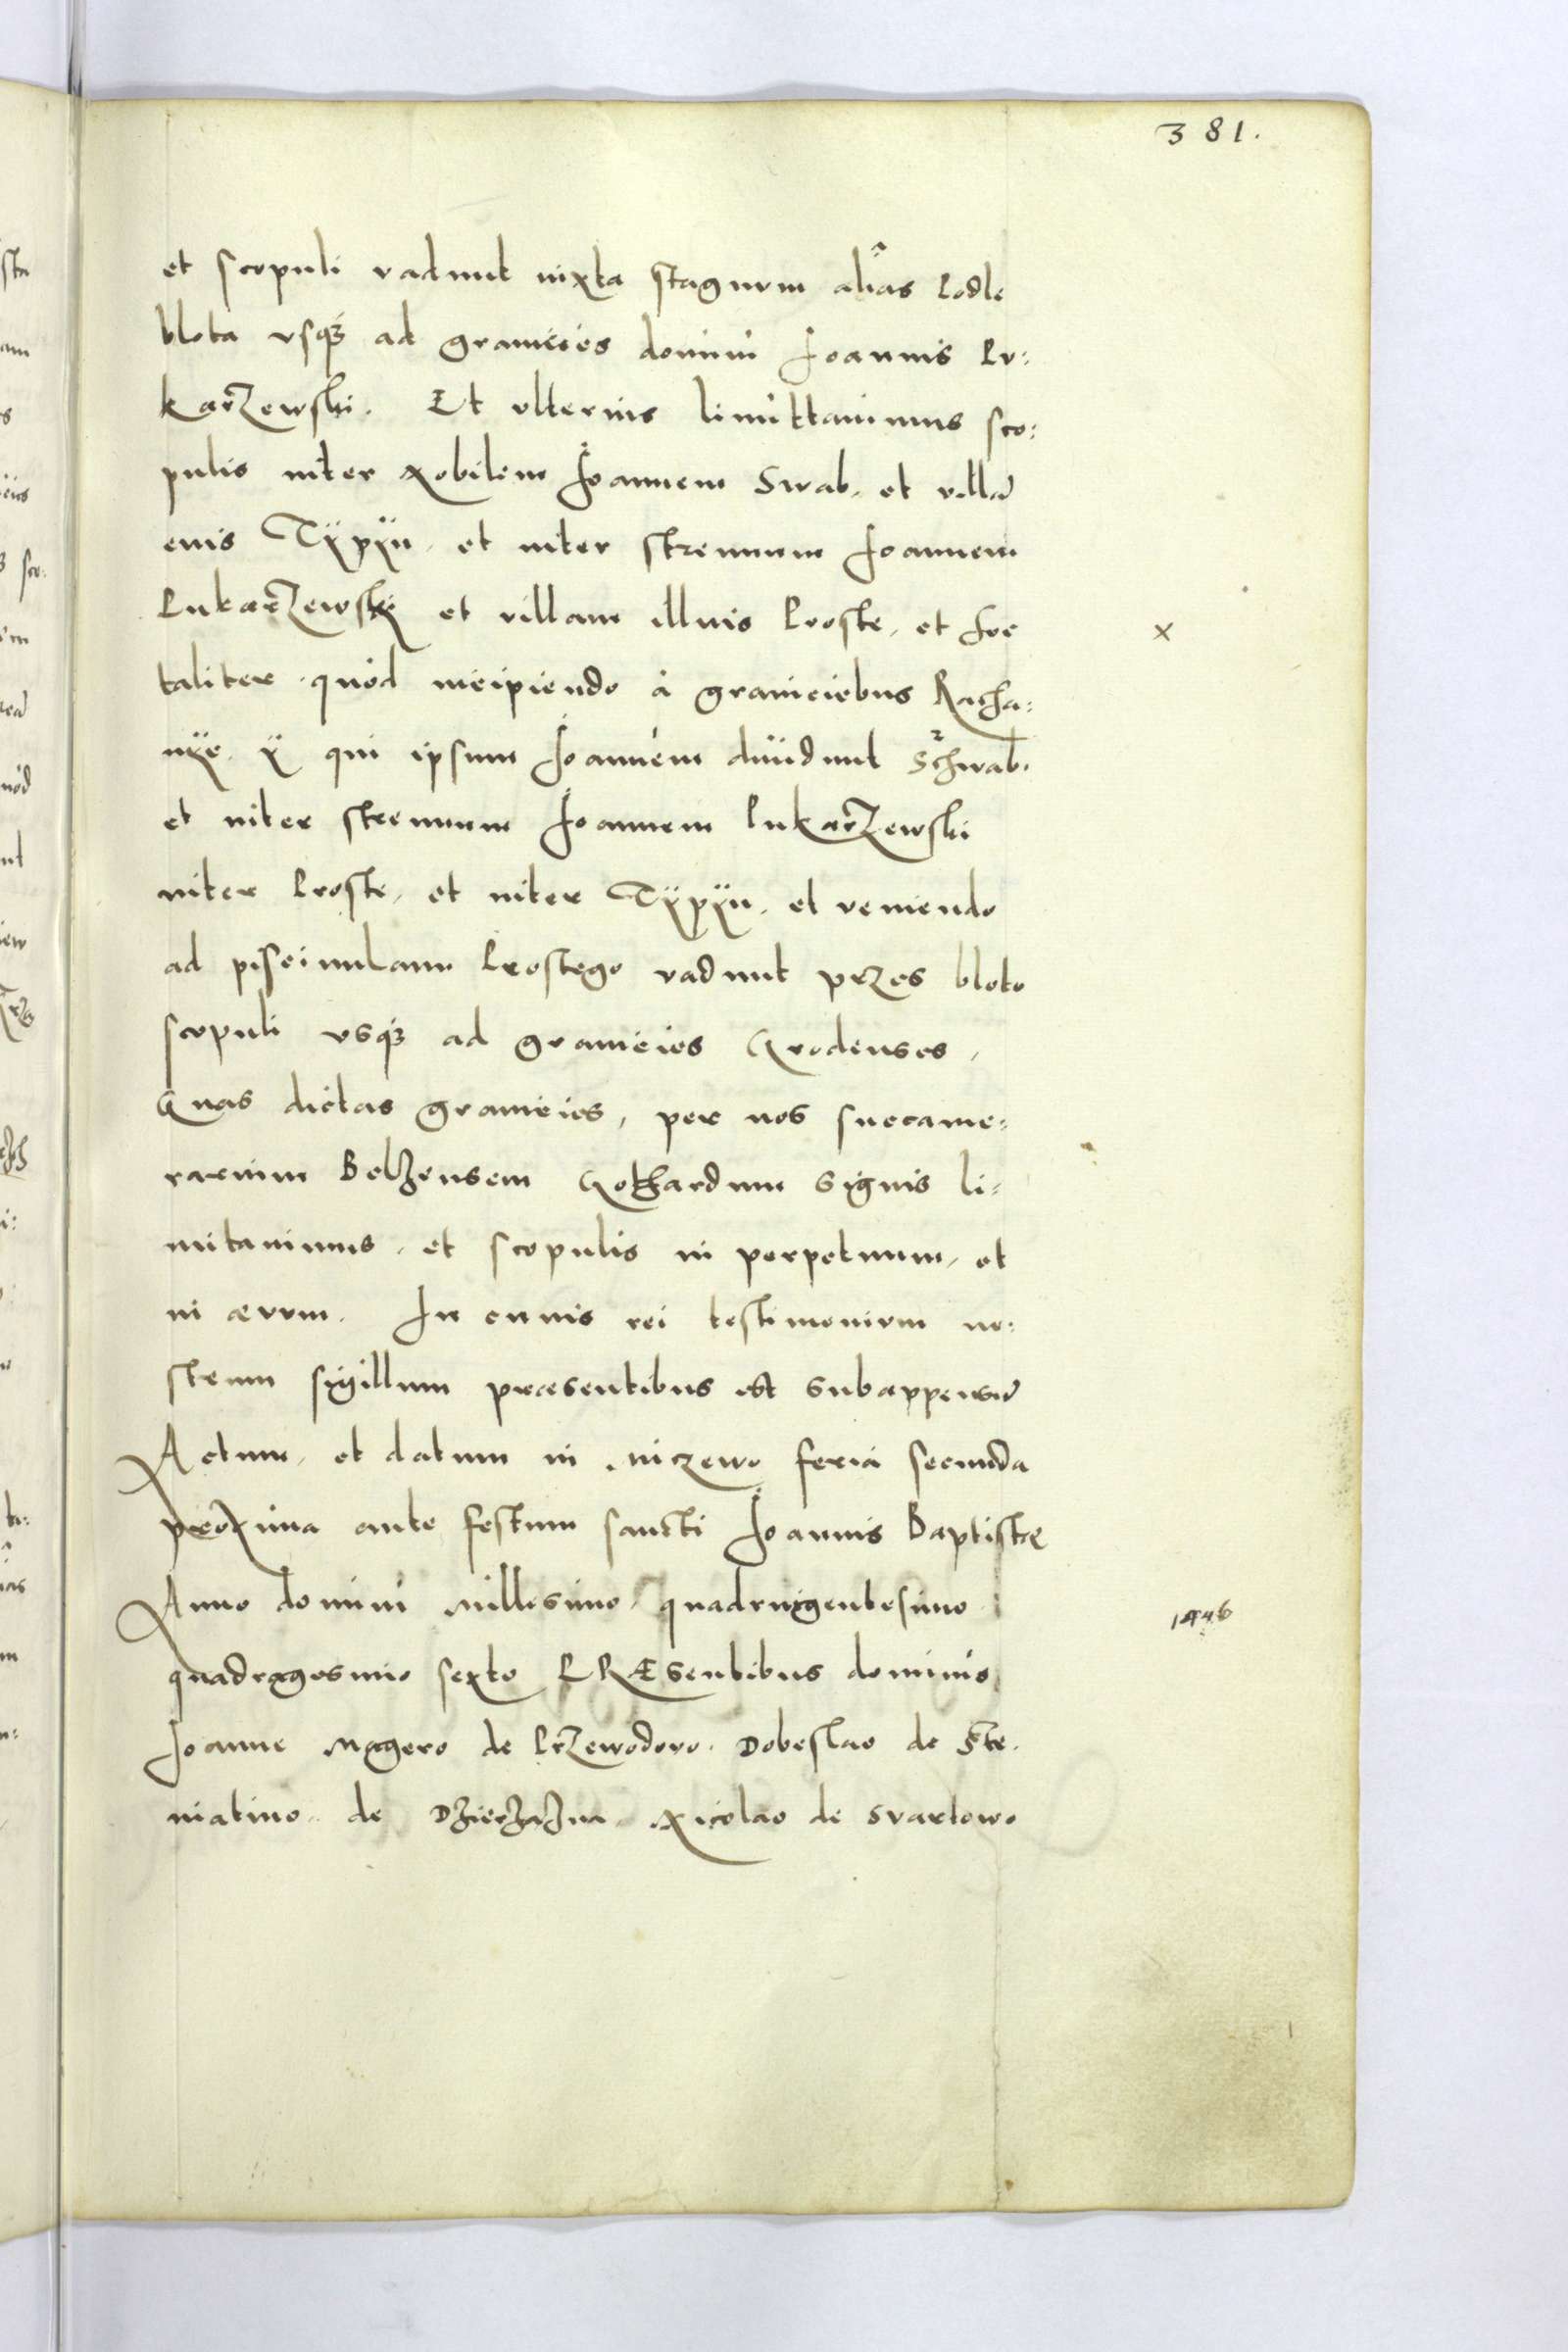 381.
et scopuli vadunt iuxta stagnum aliâs Podle
blota vsq3 ad granicies domini Joannis Pu:
karzewski. Et vlterius limittauimus sco:
pulis inter Nobilem Joannem Swab. et villã
euis Tÿpÿn. et inter strenuum Joannem
Pukarzewskÿ et villam illius Proste, et hoc
x
taliter quòd incipiendo à graniciebus Racha:
nÿe. ÿ qui ipsum Joannem diuidunt Schwab.
et inter strenuum Joannem Pukarzewski
inter Proste, et inter Tÿpÿn. et veniendo
ad piscinulam Prostego vadunt przes bloto
scopuli vsq3 ad granicies Grodenses,
Quas dictas granicies, per nos succame:
rarium Belzensem Gothardum signis li:
mitauimus. et scopulis in perpetuum, et
in æuum. In cuius rei testimonium no:
strum sigillum præsentibus est subappensũ
Actum, et datum in Niczewo feria secunda
proxima ante festum sancti Joannis Baptistæ
Anno domini Millesimo quadringentesimo
1446
quadragesimo sexto PRÆsentibus dominis
Joanne Magero de Przewodowo. Dobeslao de Ste.
niatino. de Dzierzazna. Nicolao de Svartowo